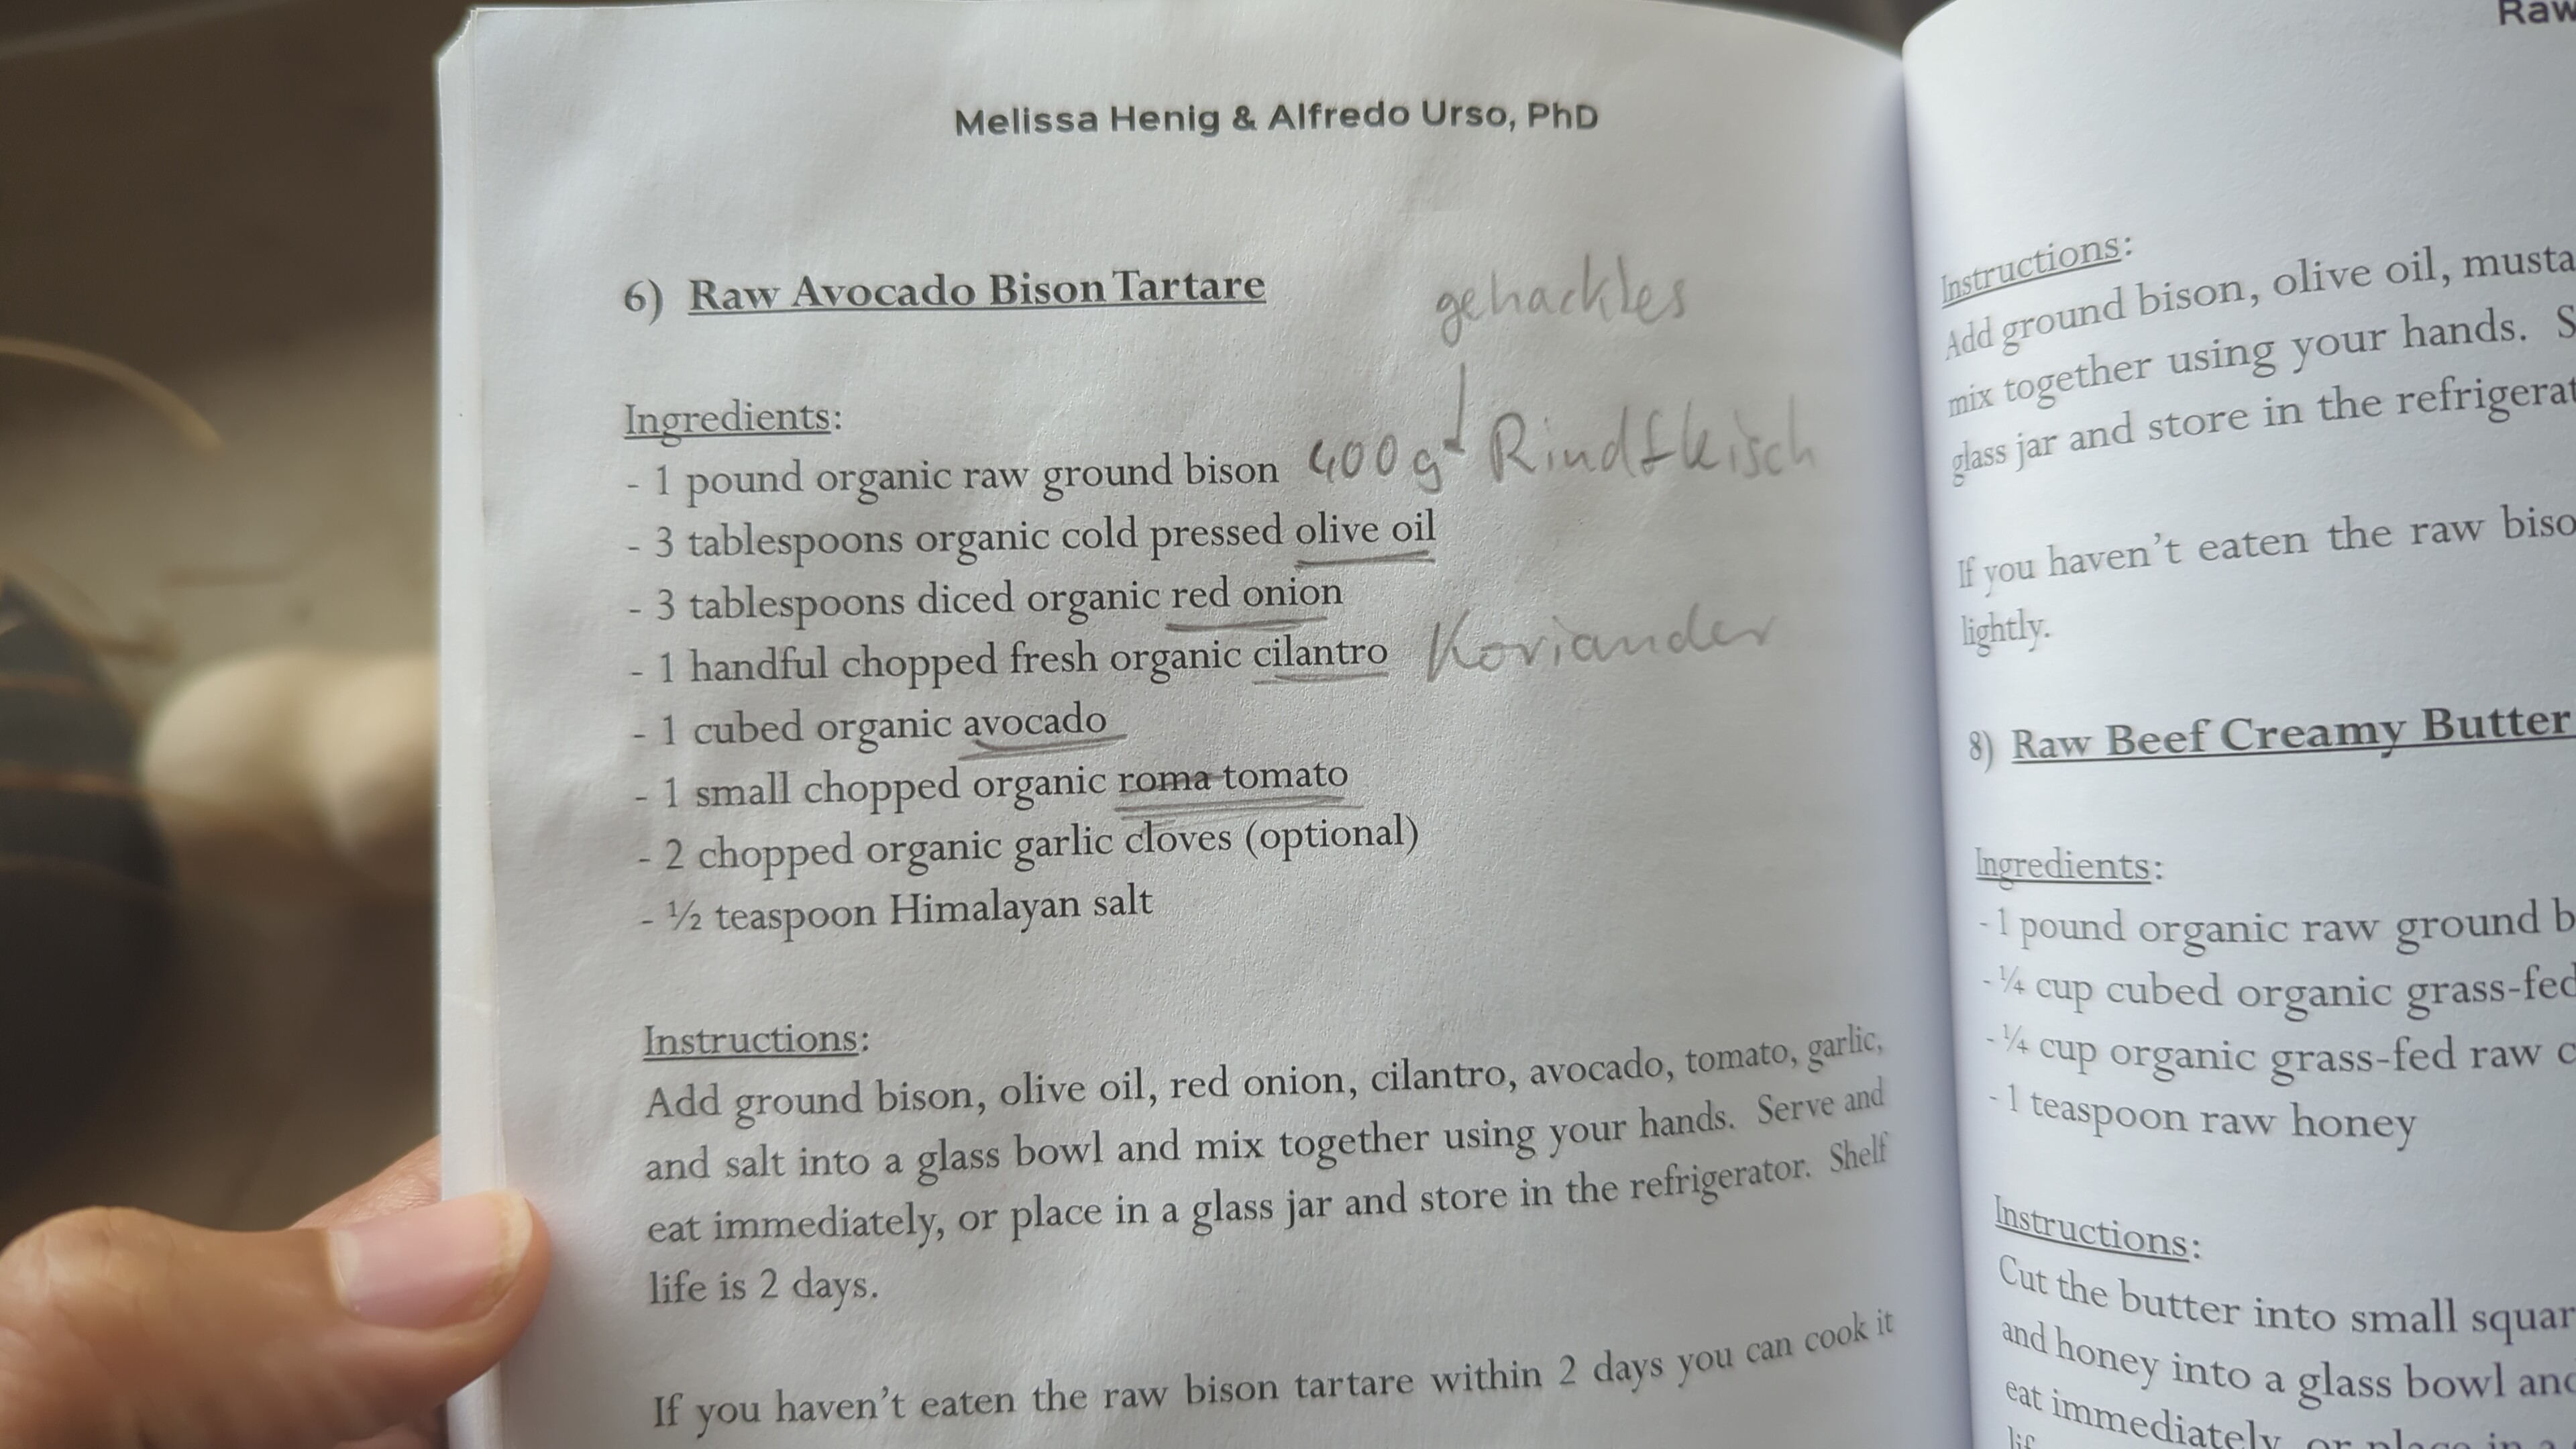 Melissa Henig & Alfredo Urso, PhD
6) Raw Avocado Bison Tartare
gehacktes
Ingredients:
- 1 pound organic raw ground bison 400g Rindfleisch
- 3 tablespoons organic cold pressed olive oil
- 3 tablespoons diced organic red onion
- 1 handful chopped fresh organic cilantro Koriander
- 1 cubed organic avocado
- 1 small chopped organic roma tomato
- 2 chopped organic garlic cloves (optional)
- ½ teaspoon Himalayan salt
Instructions:
Add ground bison, olive oil, red onion, cilantro, avocado, tomato, garlic,
and salt into a glass bowl and mix together using your hands. Serve and
eat immediately, or place in a glass jar and store in the refrigerator. Shelf
life is 2 days.
If you haven't eaten the raw bison tartare within 2 days you can cook it
Raw
Instructions:
Add ground bison, olive oil, musta
mix together using your hands. S
glass jar and store in the refrigerat
If you haven't eaten the raw biso
lightly.
8) Raw Beef Creamy Butter
Ingredients:
- 1 pound organic raw ground b
- ¼ cup cubed organic grass-fed
- ¼ cup organic grass-fed raw c
- 1 teaspoon raw honey
Instructions:
Cut the butter into small squar
and honey into a glass bowl and
eat immediately, or place in a